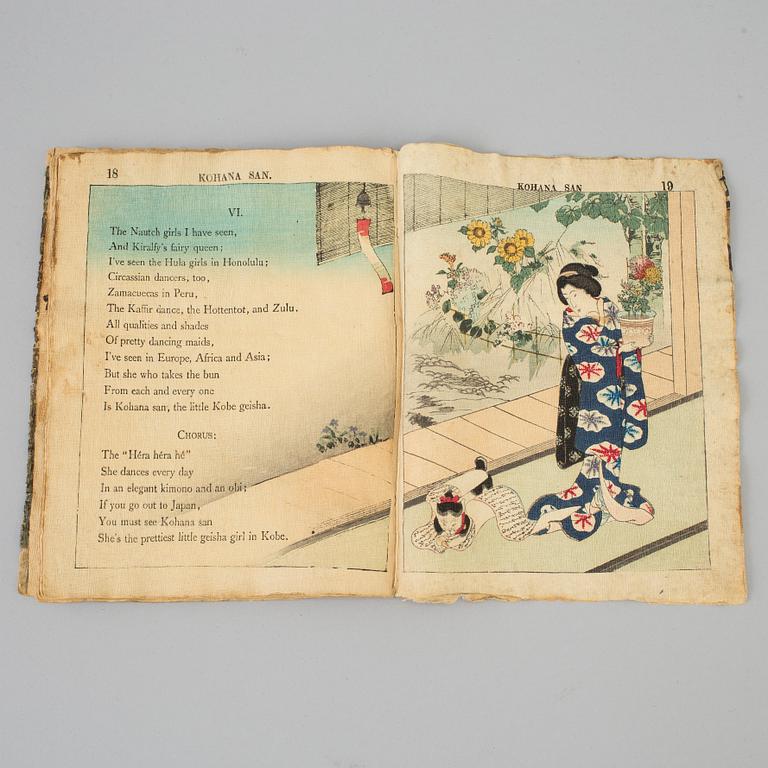 18
KOHANA SAN.
VI.
The Nautch girls I have seen,
And Kiralfy's fairy queen;
I've seen the Hula girls in Honolulu;
Circassian dancers, too,
Zamacuecas in Peru,
The Kaffir dance, the Hottentot, and Zulu.
All qualities and shades
Of pretty dancing maids,
I've seen in Europe, Africa and Asia;
But she who takes the bun
From each and every one
Is Kohana san, the little Kobe geisha.
CHORUS:
The "Héra héra hé"
She dances every day
In an elegant kimono and an obi;
If you go out to Japan,
You must see Kohana san
She's the prettiest little geisha girl in Kobe.
KOHANA SAN
19